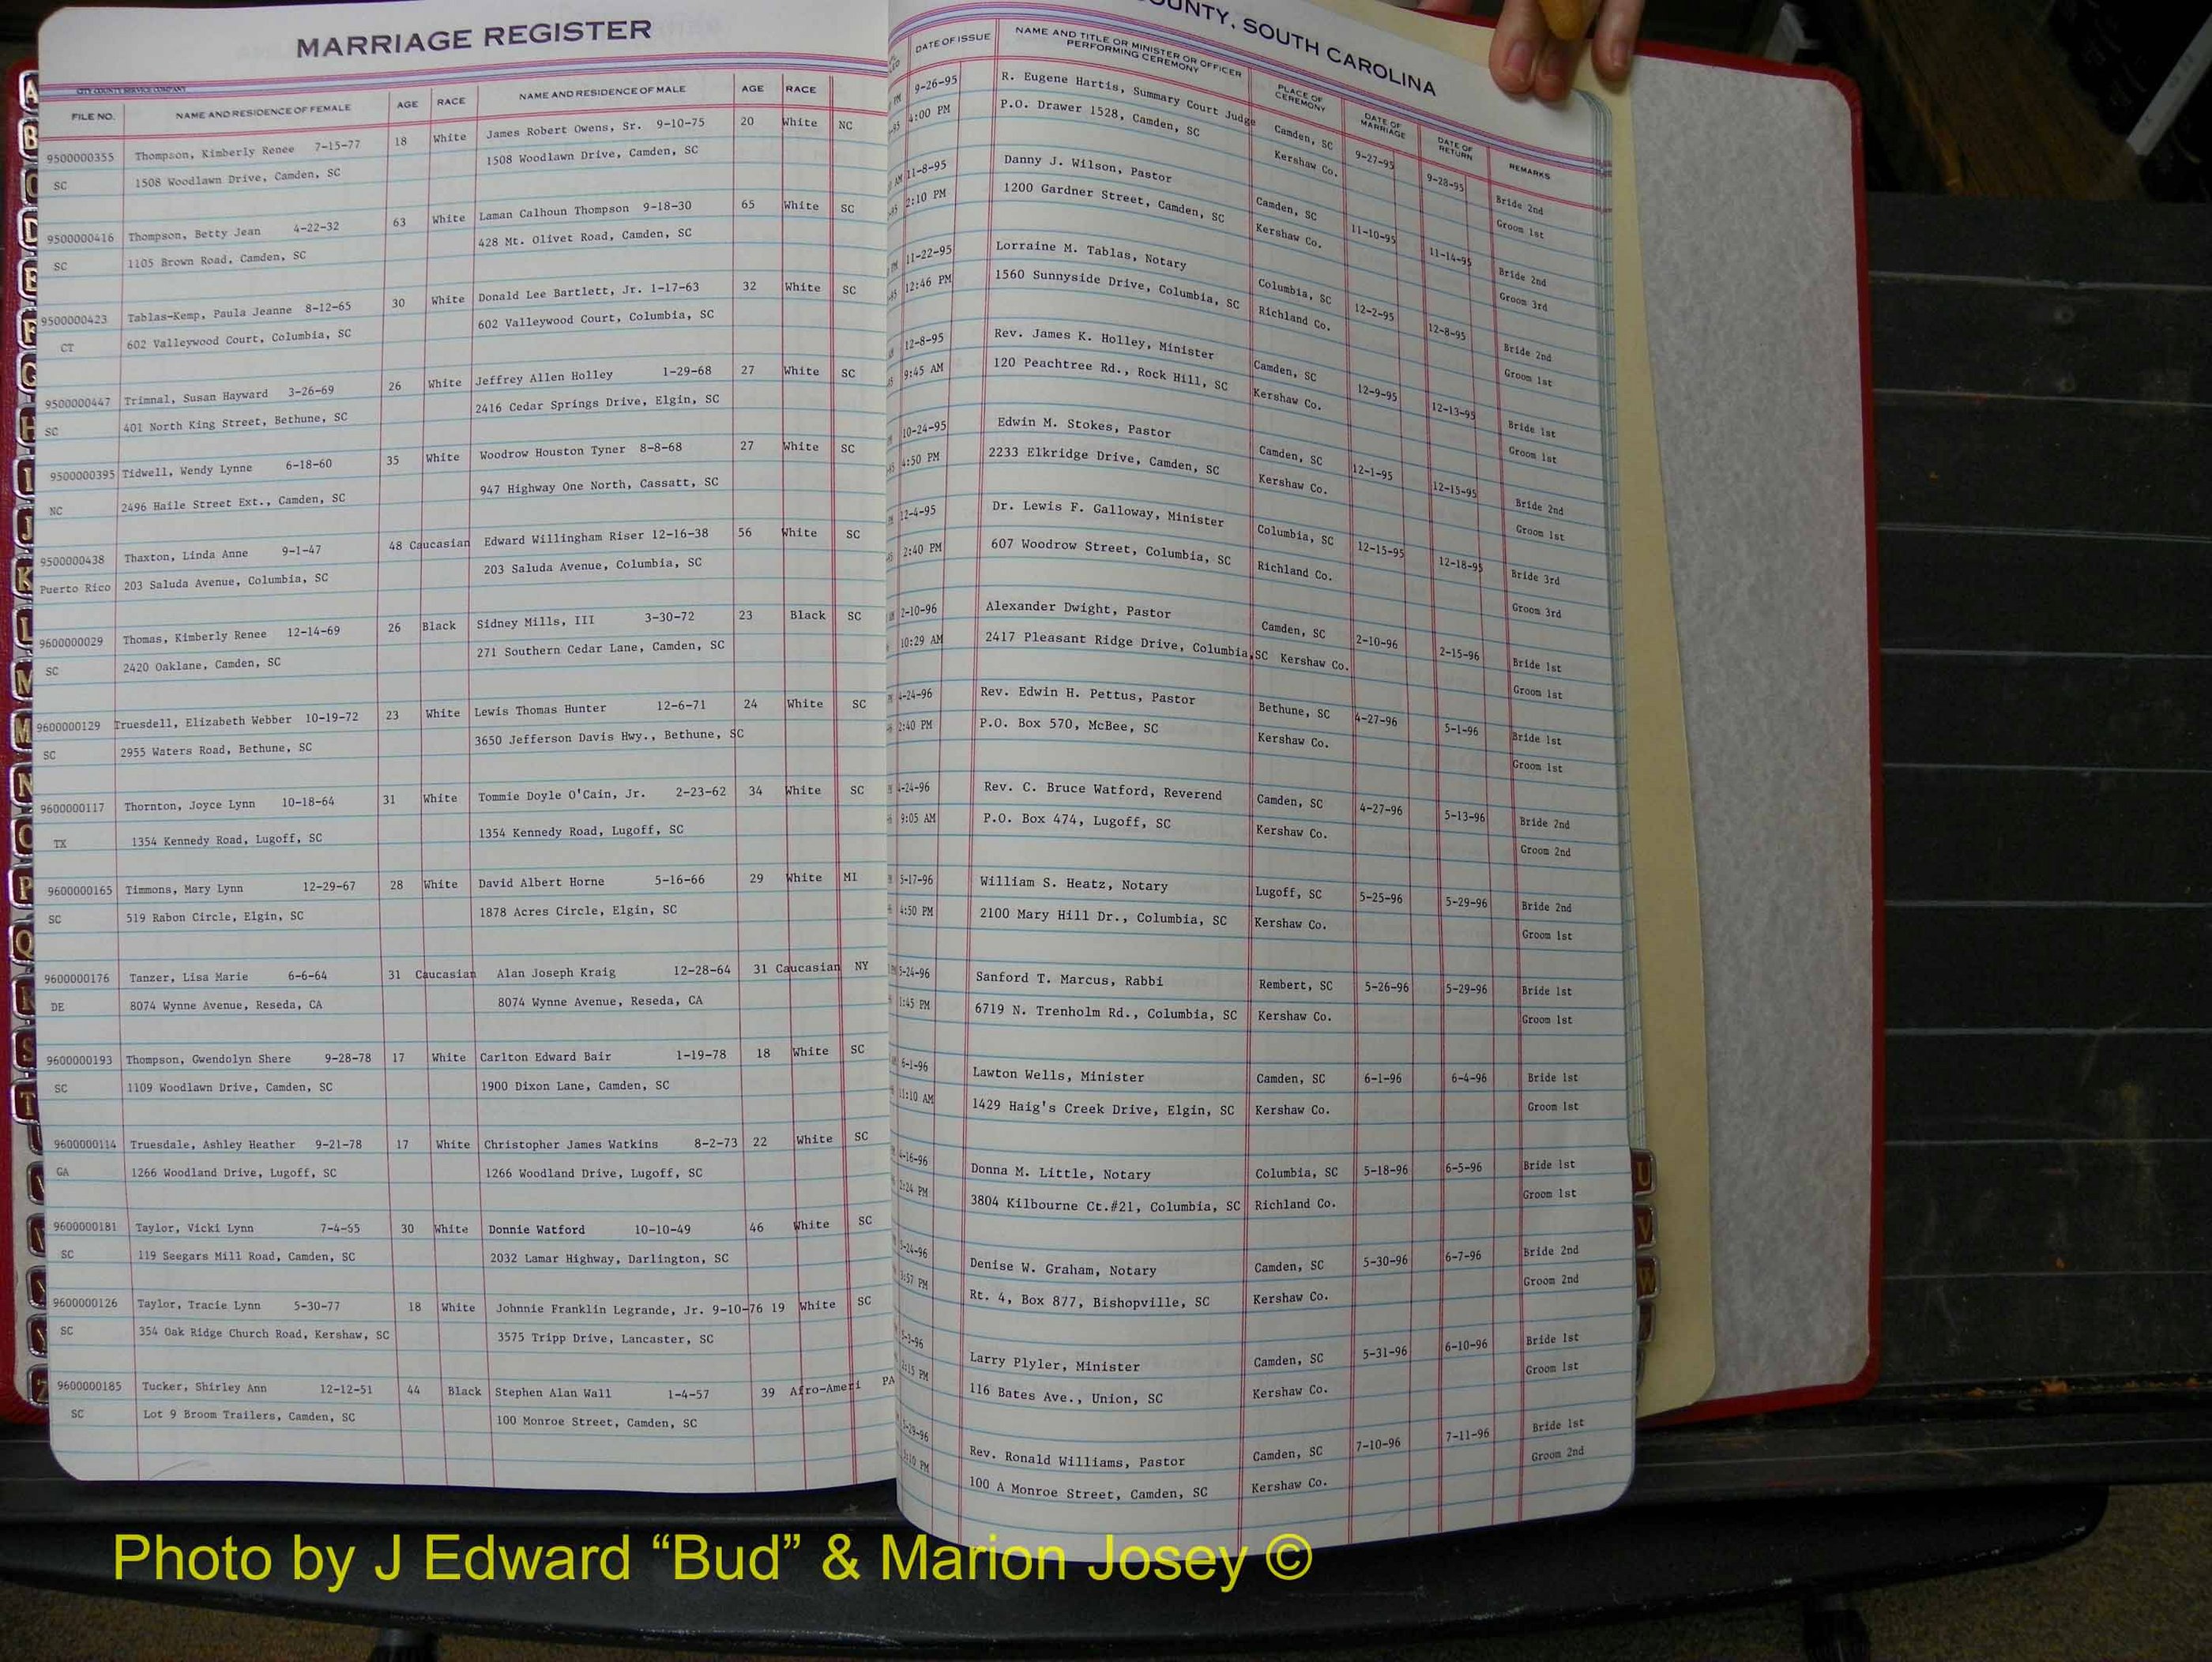 MARRIAGE REGISTER
CITY COUNTY SERVICE COMPANY
FILE NO. NAME AND RESIDENCE OF FEMALE AGE RACE NAME AND RESIDENCE OF MALE AGE RACE
9500000355 Thompson, Kimberly Renee 7-15-77 18 White James Robert Owens, Sr. 9-10-75 20 White NC
SC 1508 Woodlawn Drive, Camden, SC 1508 Woodlawn Drive, Camden, SC
9500000416 Thompson, Betty Jean 4-22-32 63 White Laman Calhoun Thompson 9-18-30 65 White SC
SC 1105 Brown Road, Camden, SC 428 Mt. Olivet Road, Camden, SC
9500000423 Tablas-Kemp, Paula Jeanne 8-12-65 30 White Donald Lee Bartlett, Jr. 1-17-63 32 White SC
CT 602 Valleywood Court, Columbia, SC 602 Valleywood Court, Columbia, SC
9500000447 Trimnal, Susan Hayward 3-26-69 26 White Jeffrey Allen Holley 1-29-68 27 White SC
SC 401 North King Street, Bethune, SC 2416 Cedar Springs Drive, Elgin, SC
9500000395 Tidwell, Wendy Lynne 6-18-60 35 White Woodrow Houston Tyner 8-8-68 27 White SC
NC 2496 Haile Street Ext., Camden, SC 947 Highway One North, Cassatt, SC
9500000438 Thaxton, Linda Anne 9-1-47 48 Caucasian Edward Willingham Riser 12-16-38 56 White SC
Puerto Rico 203 Saluda Avenue, Columbia, SC 203 Saluda Avenue, Columbia, SC
9600000029 Thomas, Kimberly Renee 12-14-69 26 Black Sidney Mills, III 3-30-72 23 Black SC
SC 2420 Oaklane, Camden, SC 271 Southern Cedar Lane, Camden, SC
9600000129 Truesdell, Elizabeth Webber 10-19-72 23 White Lewis Thomas Hunter 12-6-71 24 White SC
SC 2955 Waters Road, Bethune, SC 3650 Jefferson Davis Hwy., Bethune, SC
9600000117 Thornton, Joyce Lynn 10-18-64 31 White Tommie Doyle O'Cain, Jr. 2-23-62 34 White SC
TX 1354 Kennedy Road, Lugoff, SC 1354 Kennedy Road, Lugoff, SC
9600000165 Timmons, Mary Lynn 12-29-67 28 White David Albert Horne 5-16-66 29 White MI
SC 519 Rabon Circle, Elgin, SC 1878 Acres Circle, Elgin, SC
9600000176 Tanzer, Lisa Marie 6-6-64 31 Caucasian Alan Joseph Kraig 12-28-64 31 Caucasian NY
DE 8074 Wynne Avenue, Reseda, CA 8074 Wynne Avenue, Reseda, CA
9600000193 Thompson, Gwendolyn Shere 9-28-78 17 White Carlton Edward Bair 1-19-78 18 White SC
SC 1109 Woodlawn Drive, Camden, SC 1900 Dixon Lane, Camden, SC
9600000114 Truesdale, Ashley Heather 9-21-78 17 White Christopher James Watkins 8-2-73 22 White SC
GA 1266 Woodland Drive, Lugoff, SC 1266 Woodland Drive, Lugoff, SC
9600000181 Taylor, Vicki Lynn 7-4-65 30 White Donnie Watford 10-10-49 46 White SC
SC 119 Seegars Mill Road, Camden, SC 2032 Lamar Highway, Darlington, SC
9600000126 Taylor, Tracie Lynn 5-30-77 18 White Johnnie Franklin Legrande, Jr. 9-10-76 19 White SC
SC 354 Oak Ridge Church Road, Kershaw, SC 3575 Tripp Drive, Lancaster, SC
9600000185 Tucker, Shirley Ann 12-12-51 44 Black Stephen Alan Wall 1-4-57 39 Afro-Ameri PA
SC Lot 9 Broom Trailers, Camden, SC 100 Monroe Street, Camden, SC
COUNTY, SOUTH CAROLINA
DATE OF ISSUE NAME AND TITLE OR MINISTER OR OFFICER PERFORMING CEREMONY PLACE OF CEREMONY DATE OF MARRIAGE DATE OF RETURN REMARKS
9-26-95 R. Eugene Hartis, Summary Court Judge Camden, SC 9-27-95 9-28-95 Bride 2nd
4:00 PM P.O. Drawer 1528, Camden, SC Kershaw Co. Groom 1st
11-8-95 Danny J. Wilson, Pastor Camden, SC 11-10-95 11-14-95 Bride 2nd
2:10 PM 1200 Gardner Street, Camden, SC Kershaw Co. Groom 3rd
11-22-95 Lorraine M. Tablas, Notary Columbia, SC 12-2-95 12-8-95 Bride 2nd
12:46 PM 1560 Sunnyside Drive, Columbia, SC Richland Co. Groom 1st
12-8-95 Rev. James K. Holley, Minister Camden, SC 12-9-95 12-13-95 Bride 1st
9:45 AM 120 Peachtree Rd., Rock Hill, SC Kershaw Co. Groom 1st
10-24-95 Edwin M. Stokes, Pastor Camden, SC 12-1-95 12-15-95 Bride 2nd
4:50 PM 2233 Elkridge Drive, Camden, SC Kershaw Co. Groom 1st
12-4-95 Dr. Lewis F. Galloway, Minister Columbia, SC 12-15-95 12-18-95 Bride 3rd
2:40 PM 607 Woodrow Street, Columbia, SC Richland Co. Groom 3rd
2-10-96 Alexander Dwight, Pastor Camden, SC 2-10-96 2-15-96 Bride 1st
10:29 AM 2417 Pleasant Ridge Drive, Columbia,SC Kershaw Co. Groom 1st
4-24-96 Rev. Edwin H. Pettus, Pastor Bethune, SC 4-27-96 5-1-96 Bride 1st
2:40 PM P.O. Box 570, McBee, SC Kershaw Co. Groom 1st
4-24-96 Rev. C. Bruce Watford, Reverend Camden, SC 4-27-96 5-13-96 Bride 2nd
9:05 AM P.O. Box 474, Lugoff, SC Kershaw Co. Groom 2nd
5-17-96 William S. Heatz, Notary Lugoff, SC 5-25-96 5-29-96 Bride 2nd
4:50 PM 2100 Mary Hill Dr., Columbia, SC Kershaw Co. Groom 1st
5-24-96 Sanford T. Marcus, Rabbi Rembert, SC 5-26-96 5-29-96 Bride 1st
1:45 PM 6719 N. Trenholm Rd., Columbia, SC Kershaw Co. Groom 1st
6-1-96 Lawton Wells, Minister Camden, SC 6-1-96 6-4-96 Bride 1st
11:10 AM 1429 Haig's Creek Drive, Elgin, SC Kershaw Co. Groom 1st
4-16-96 Donna M. Little, Notary Columbia, SC 5-18-96 6-5-96 Bride 1st
2:24 PM 3804 Kilbourne Ct.#21, Columbia, SC Richland Co. Groom 1st
5-24-96 Denise W. Graham, Notary Camden, SC 5-30-96 6-7-96 Bride 2nd
3:57 PM Rt. 4, Box 877, Bishopville, SC Kershaw Co. Groom 2nd
5-3-96 Larry Plyler, Minister Camden, SC 5-31-96 6-10-96 Bride 1st
2:15 PM 116 Bates Ave., Union, SC Kershaw Co. Groom 1st
5-29-96 Rev. Ronald Williams, Pastor Camden, SC 7-10-96 7-11-96 Bride 1st
100 A Monroe Street, Camden, SC Kershaw Co. Groom 2nd
A
B
C
D
E
F
G
H
I
J
K
L
M
M
N
O
P
Q
R
S
T
U
V
W
Photo by J Edward “Bud” & Marion Josey ©